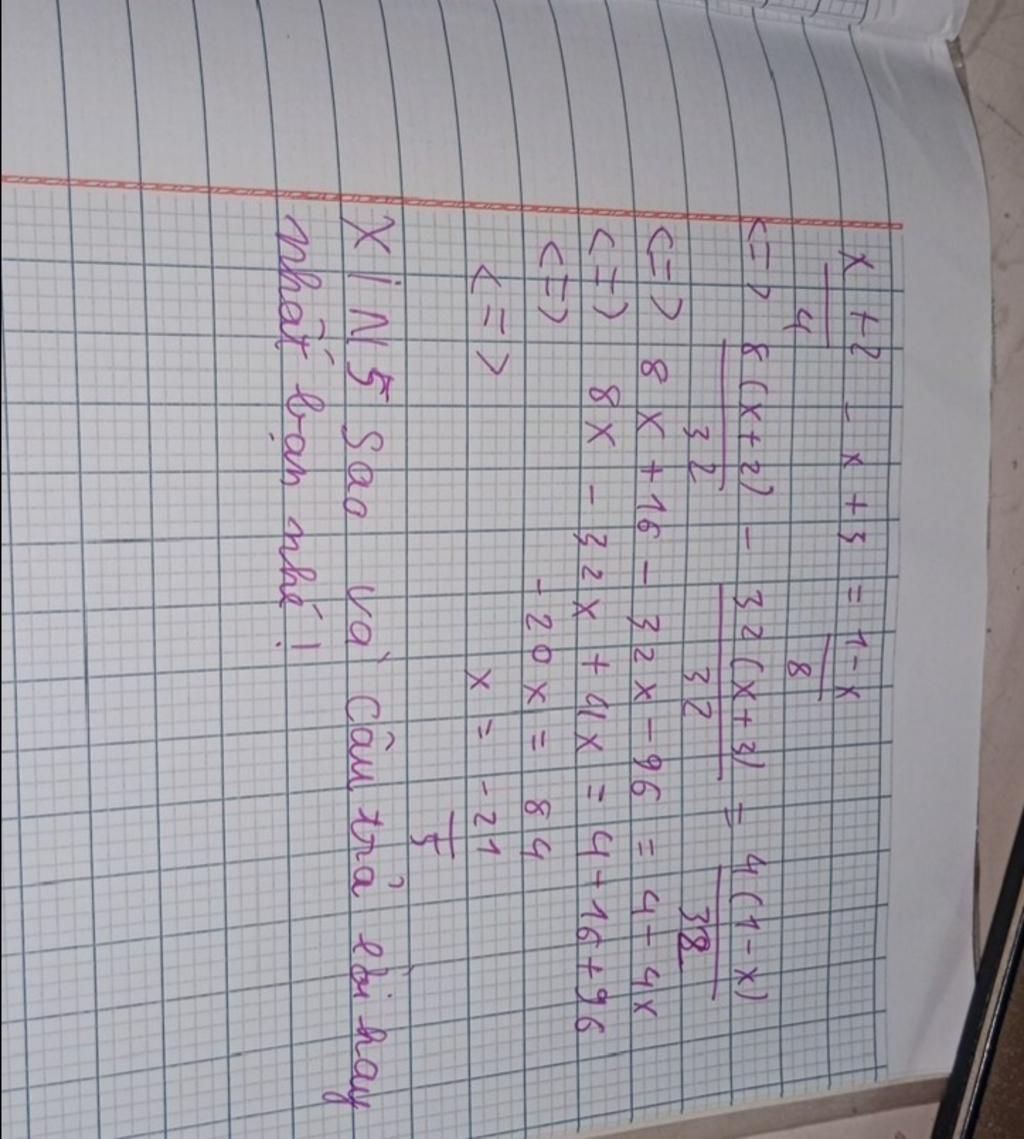 x+2 - x+3 = 1-x
4 8
<=> 8(x+2) - 32(x+3) = 4(1-x)
32 32 32
<=> 8x+16-32x-96 = 4-4x
<=> 8x-32x+4x = 4-16+96
<=> -20x = 84
<=> x = -21
5
XIN 5 sao và câu trả lời hay
nhất bạn nhé!